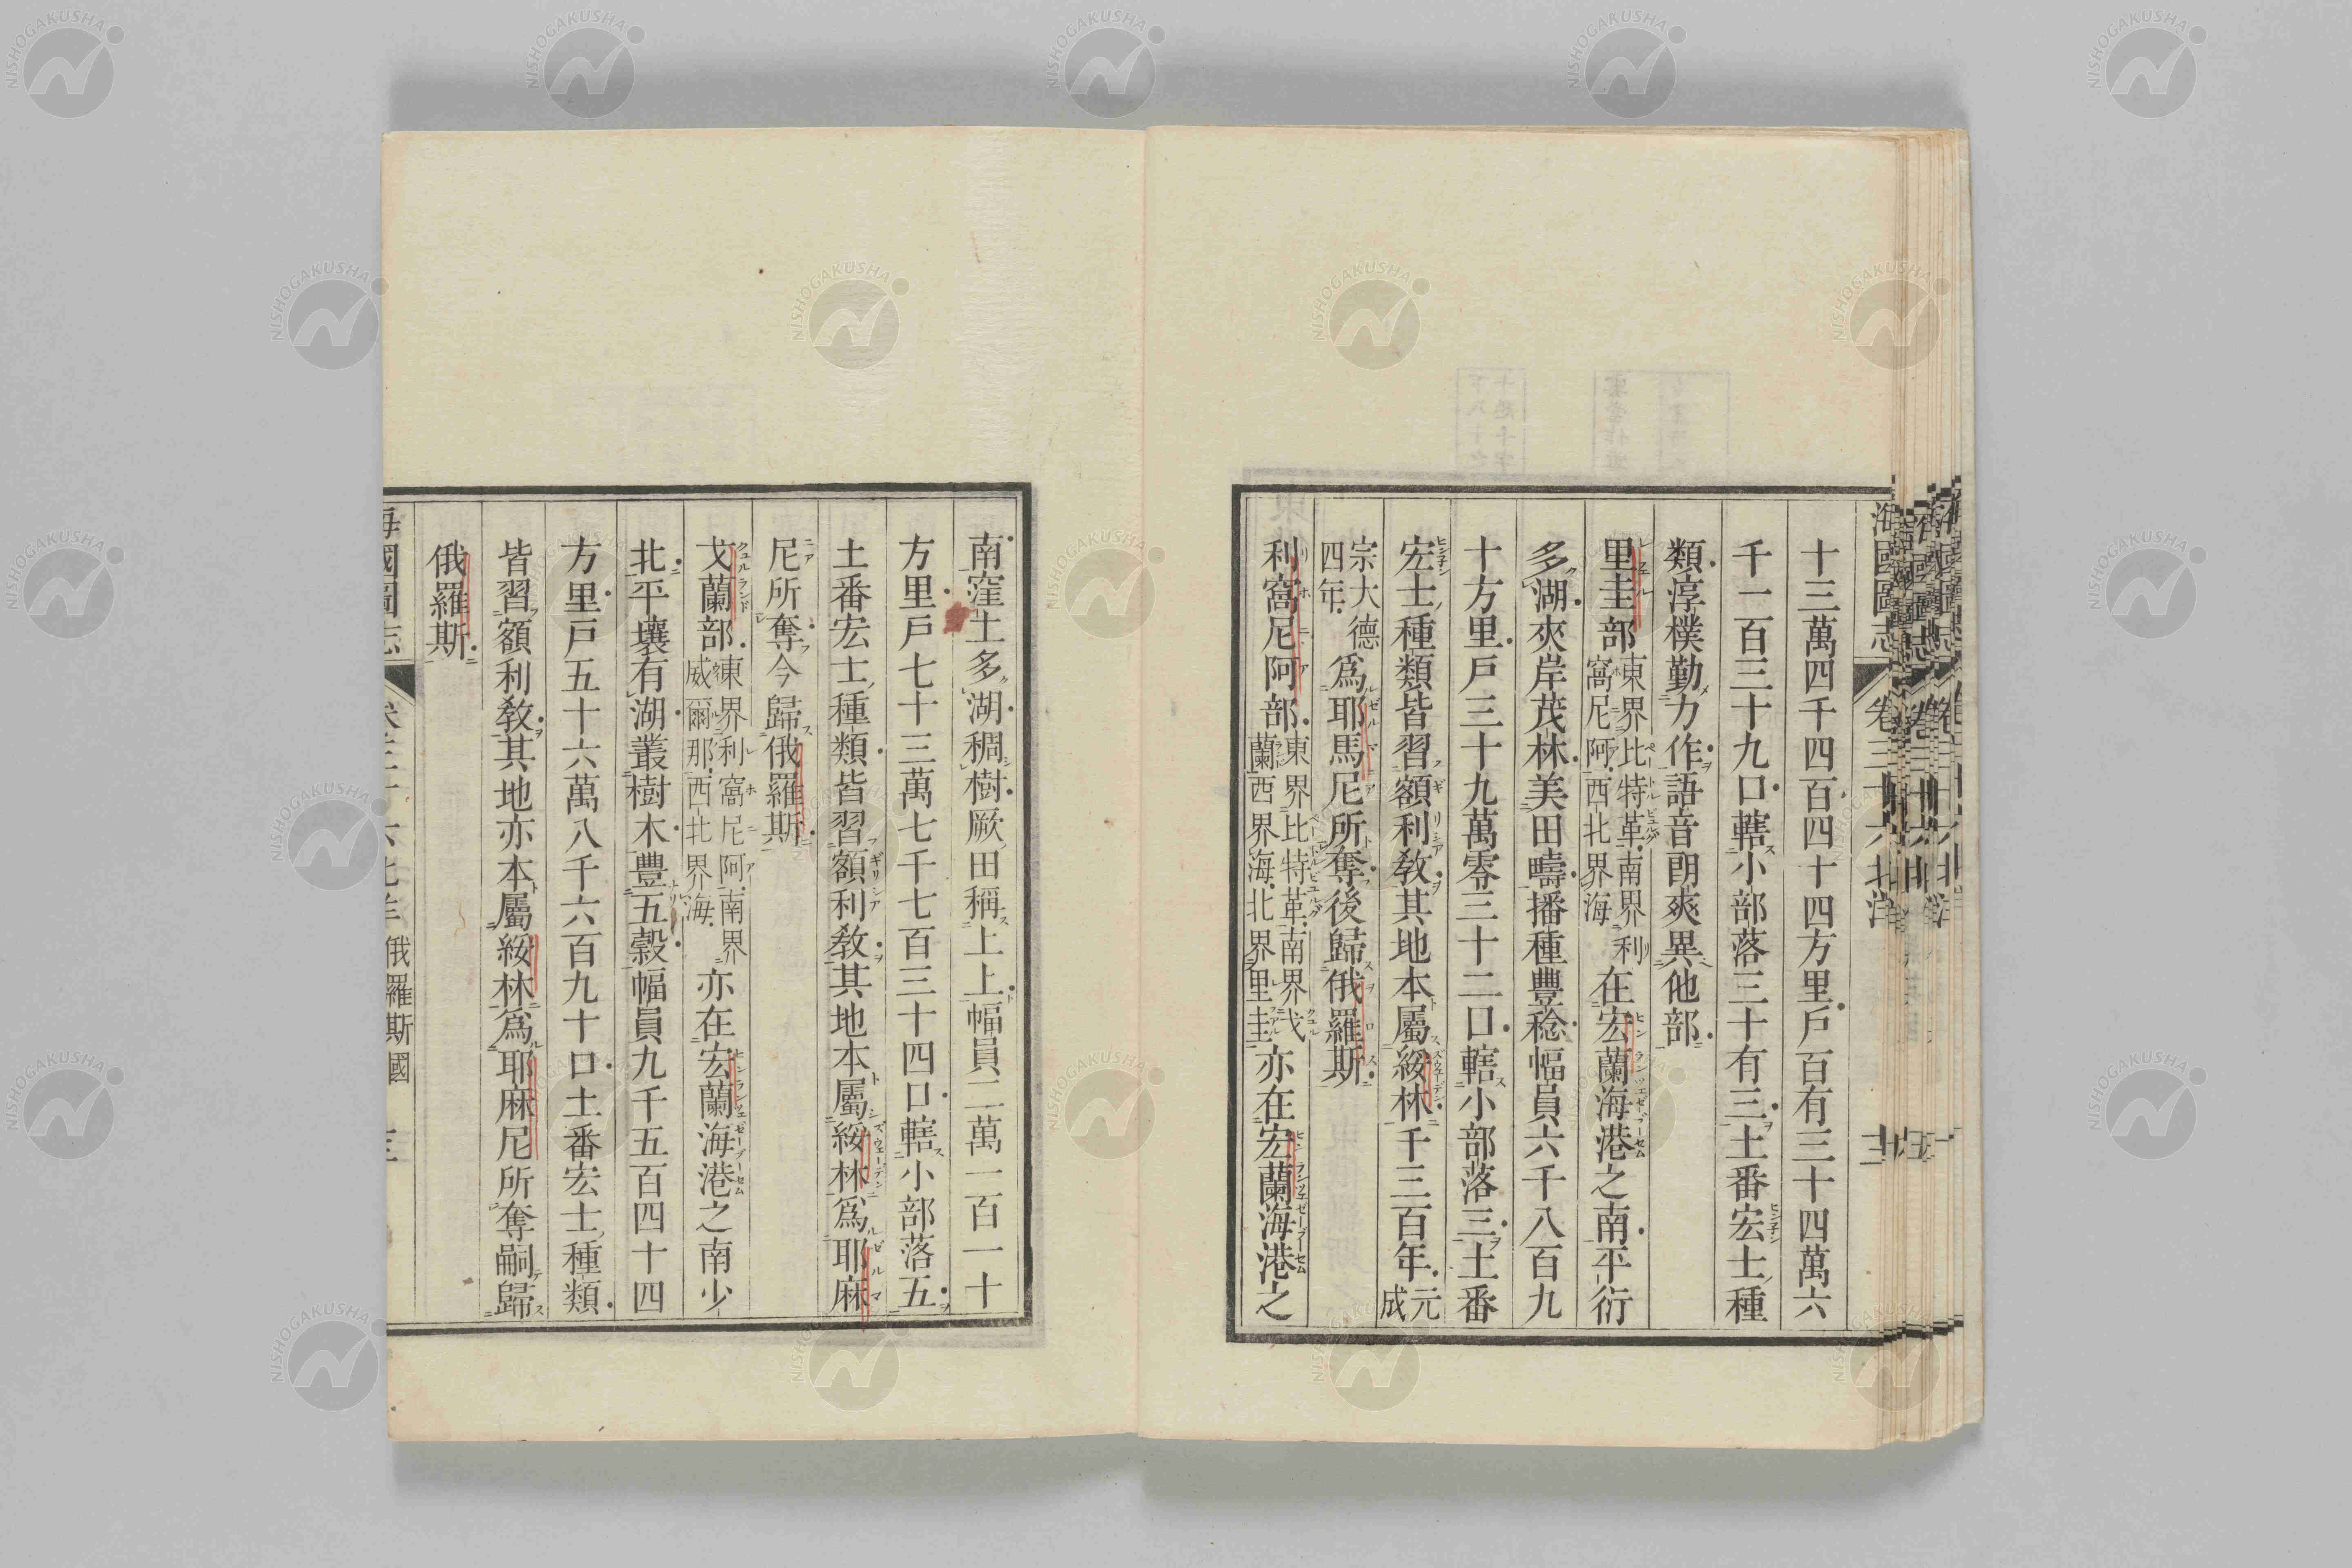 海國圖志 卷三十六 北洋
十三萬四千四百四十四方里戶百有三十四萬六
千一百三十九口轄小部落三十有三土番宏士種
類淳樸勤力作語音朗爽異他部
里圭部 東界比特革南界利窩尼阿西北界海 在宏蘭海港之南平衍
多湖夾岸茂林美田疇播種豐稔幅員六千八百九
十方里戶三十九萬零三十二口轄小部落三土番
宏士種類皆習額利敎其地本屬綏林千三百年元成
宗大德四年爲耶馬尼所奪後歸俄羅斯
利窩尼阿部 東界比特革南界戈蘭西界海北界里圭 亦在宏蘭海港之
南窪土多湖稠樹厥田稱上上幅員二萬一百一十
方里戶七十三萬七千七百三十四口轄小部落五
土番宏士種類皆習額利敎其地本屬綏林爲耶麻
尼所奪今歸俄羅斯
戈蘭部 東界利窩尼阿南界威爾那西北界海 亦在宏蘭海港之南少
北平壤有湖叢樹木豐五穀幅員九千五百四十四
方里戶五十六萬八千六百九十口土番宏士種類
皆習額利敎其地亦本屬綏林爲耶麻尼所奪嗣歸
俄羅斯
海國圖志 卷三十六 北洋 俄羅斯國
NISHOGAKUSHA